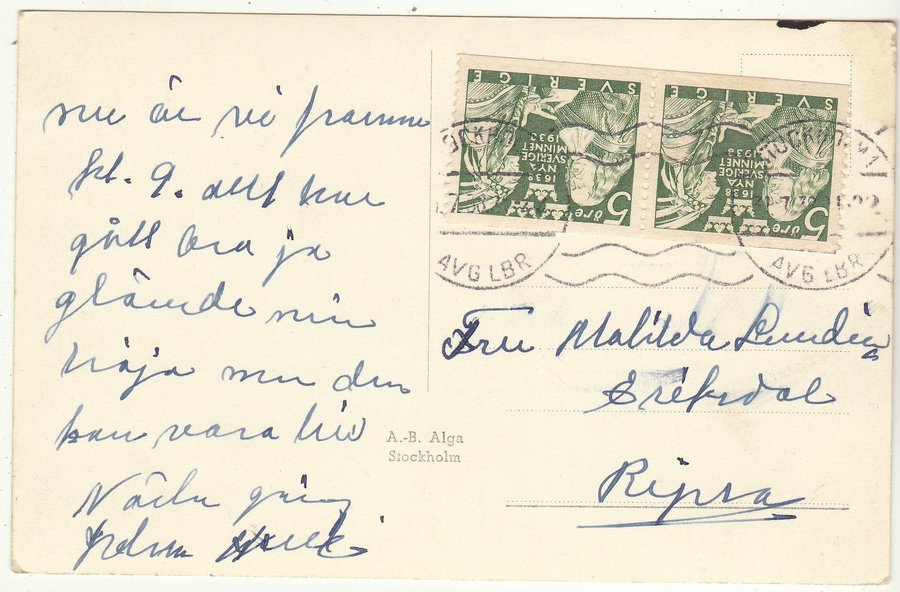 nu är vi framme
kl. 9. allt har
gått bra ja
glämde min
tröja men den
kan vara till
Nästa gång
SVERIGE
1638 1938
NYA
SVERIGE
MINNET
5 öre
SVERIGE
1638 1938
NYA
SVERIGE
MINNET
5 öre
STOCKHOLM 1
AVG LBR
AVG LBR
Fru Matilda Lundin
Eriksdal
Ripsa
A.-B. Alga
Stockholm